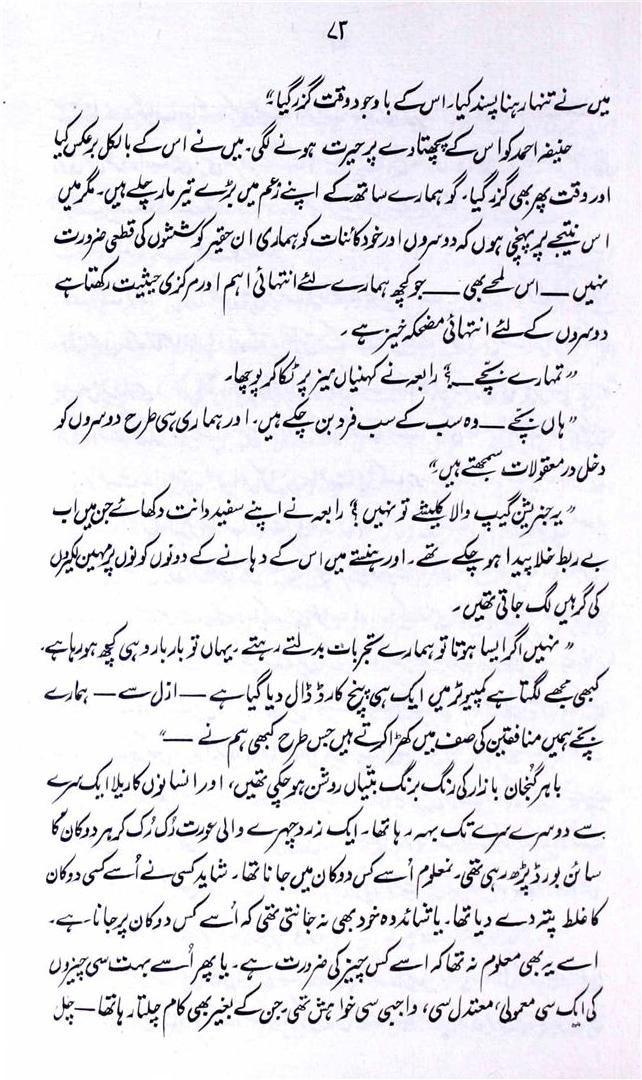 ۷۳
میں نے تنہا رہنا پسند کیا۔ اس کے باوجود وقت گزر گیا۔"
حنیفہ احمد کو اس کے پچھتاوے پر حیرت ہونے لگی۔ میں نے اس کے بالکل برعکس کیا
اور وقت پھر بھی گزر گیا۔ گو ہمارے ساتھ کے اپنے زعم میں بڑے تیر مار چلے ہیں۔ مگر میں
اس نتیجے پر پہنچی ہوں کہ دوسروں اور خود کائنات کو ہماری ان حقیر کوششوں کی قطعی ضرورت
نہیں — اس لمحے بھی — جو کچھ ہمارے لئے انتہائی اہم اور مرکزی حیثیت رکھتا ہے
دوسروں کے لئے انتہائی مضحکہ خیز ہے۔
"تمہارے بچے —؟" رابعہ نے کہنیاں میز پر ٹکا کر پوچھا۔
"ہاں بچے — وہ سب کے سب فرد بن چکے ہیں۔ اور ہماری ہی طرح دوسروں کو
دخل در معقولات سمجھتے ہیں"
"یہ جنریشن گیپ والا کلیشے تو نہیں؟ رابعہ نے اپنے سفید دانت دکھائے جن میں اب
بے ربط خلا پیدا ہو چکے تھے۔ اور ہنستے میں اس کے دہانے کے دونوں کونوں پر مہین لکیروں
کی گرہیں لگ جاتی تھیں۔
"نہیں اگر ایسا ہوتا تو ہمارے تجربات بدلتے رہتے۔ یہاں تو بار بار وہی کچھ ہو رہا ہے۔
کبھی مجھے لگتا ہے کمپیوٹر میں ایک ہی پنچ کارڈ ڈال دیا گیا ہے — ازل سے — ہمارے
بچے ہمیں منافقین کی صف میں کھڑا کرتے ہیں جس طرح کبھی ہم نے —"
باہر گنجان بازار کی رنگ برنگ بتیاں روشن ہو چکی تھیں، اور انسانوں کا ریلا ایک سرے
سے دوسرے سرے تک بہہ رہا تھا۔ ایک زرد چہرے والی عورت رُک رُک کر ہر دوکان کا
سائن بورڈ پڑھ رہی تھی۔ نمعلوم اُسے کس دوکان میں جانا تھا۔ شاید کسی نے اُسے کسی دوکان
کا غلط پتہ دے دیا تھا۔ یا شاید وہ خود بھی نہ جانتی تھی کہ اُسے کس دوکان پر جانا ہے۔
اسے یہ بھی معلوم نہ تھا کہ اسے کس چیز کی ضرورت ہے۔ یا پھر اُسے بہت سی چیزوں
کی ایک سی معمولی، معتدل سی، واجبی سی خواہش تھی جن کے بغیر بھی کام چلتا رہا تھا — چل